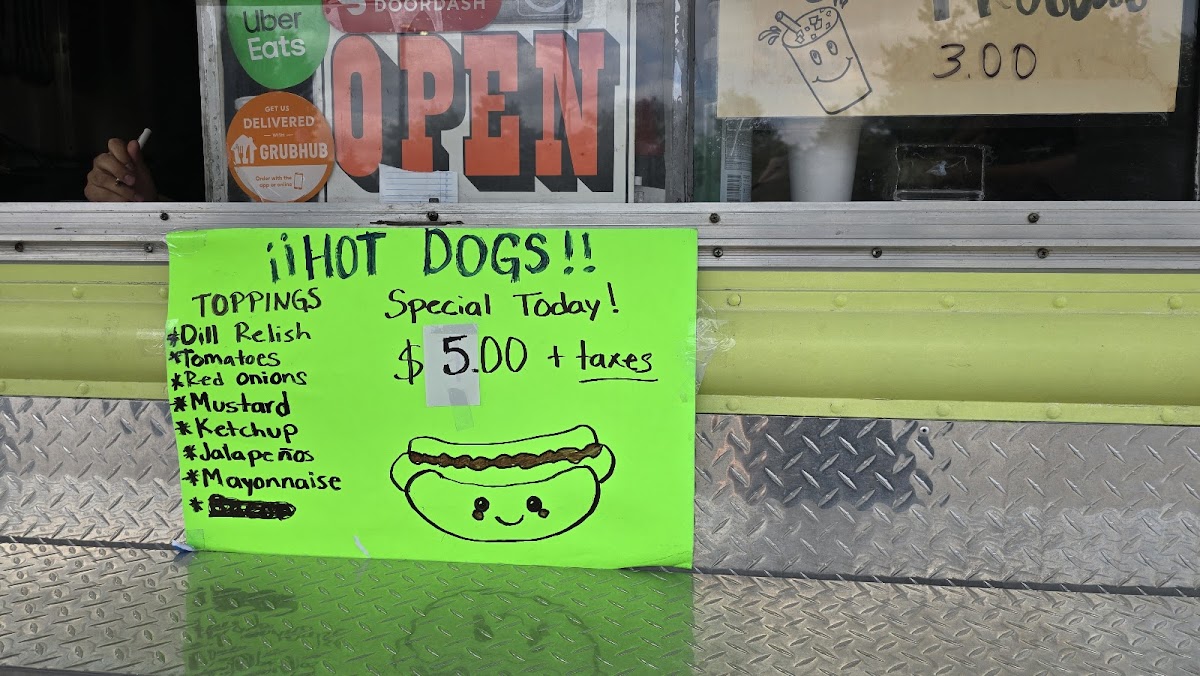 Uber
Eats
DOORDASH
OPEN
GET US
DELIVERED
WITH
GRUBHUB
Order with the
app or online
3.00
¡¡HOT DOGS!!
TOPPINGS
*Dill Relish
*Tomatoes
*Red onions
*Mustard
*Ketchup
*Jalapeños
*Mayonnaise
*
Special Today!
$5.00 + taxes